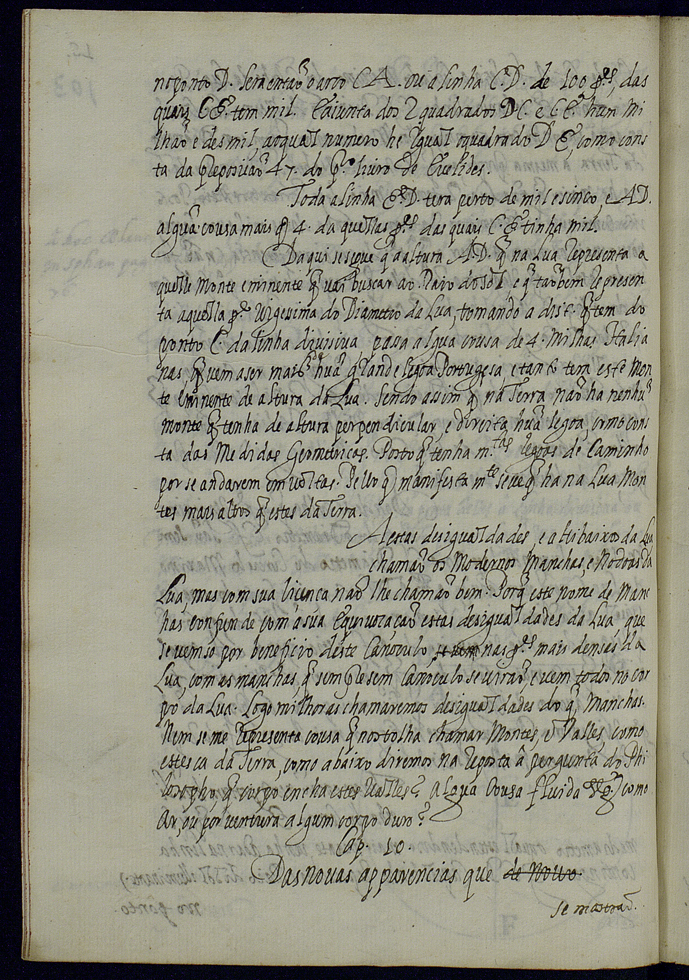 no ponto D. sera entaõ o arco C A. ou a linha C.D. de 100 p.es, das
quais C E. tem mil. E a junta dos 2 quadrados D C. e C E. hum mi
lhaõ e des mil, ao qual numero he igual o quadrado D E, como cons
ta da preposiçaõ 47. do p.o livro de Euclides.
Toda a linha E.D. tera perto de mil e sinco, e A D.
algũa cousa mais q̃ 4. da quellas p.es das quais C. E. tinha mil.
Daqui se segue q̃ a altura A.D. q̃ na Lua representa a
quelle Monte eminente q̃ vai buscar ao Raio do sol e q̃ tambẽm represen
ta aquella p.te vigesima do Diametro da Lua, tomando a dist.a q̃ tem do
ponto C. da linha divisiva passa algua cousa de 4. Milhas Italia
nas q̃ vem a ser mais hũa grande legoa Portugesa, e tanto tem este Mon
te Eminente de altura da Lua. Sendo assim q̃ na Terra naõ ha nenhũ
monte q̃ tenha de altura perpendicular, e direita hũa legoa, como cons
ta das Medidas Geometricas. Posto q̃ tenha m.tas legoas de Caminho
por se andarem em voltas. Pello q̃ manifesta m.te se ve q̃ ha na Lua Mon
tes mais altos q̃ estes da Terra.
A estas desigualdades e altibaixos da Lua
chamaõ os Modernos Manchas, e Nodoas da
Lua, mas com sua licença naõ lhe chamaõ bem. Porq̃ este nome de Man
chas confunde com a sua equivocaçaõ estas desigualdades da Lua que
se vem so por beneficio deste Canoculo, se vem nas p.es mais densas da
Lua, com as manchas q̃ sempre sem Canoculo se viraõ, e vem todo no cor
po da Lua. Logo milhor as chamaremos desigualdades do q̃ Manchas.
Nem se me representa cousa q̃ nos tolha chamar Montes e Valles, como
estes ca da Terra, como abaixo diremos na reposta á pergunta do Phi
losopho q̃ corpo encha estes Valles? Algũa Cousa fluida como
Ar, ou por ventura algum corpo duro?
Cap. 10.
Das novas apparencias que de Novo
se mostraõ.